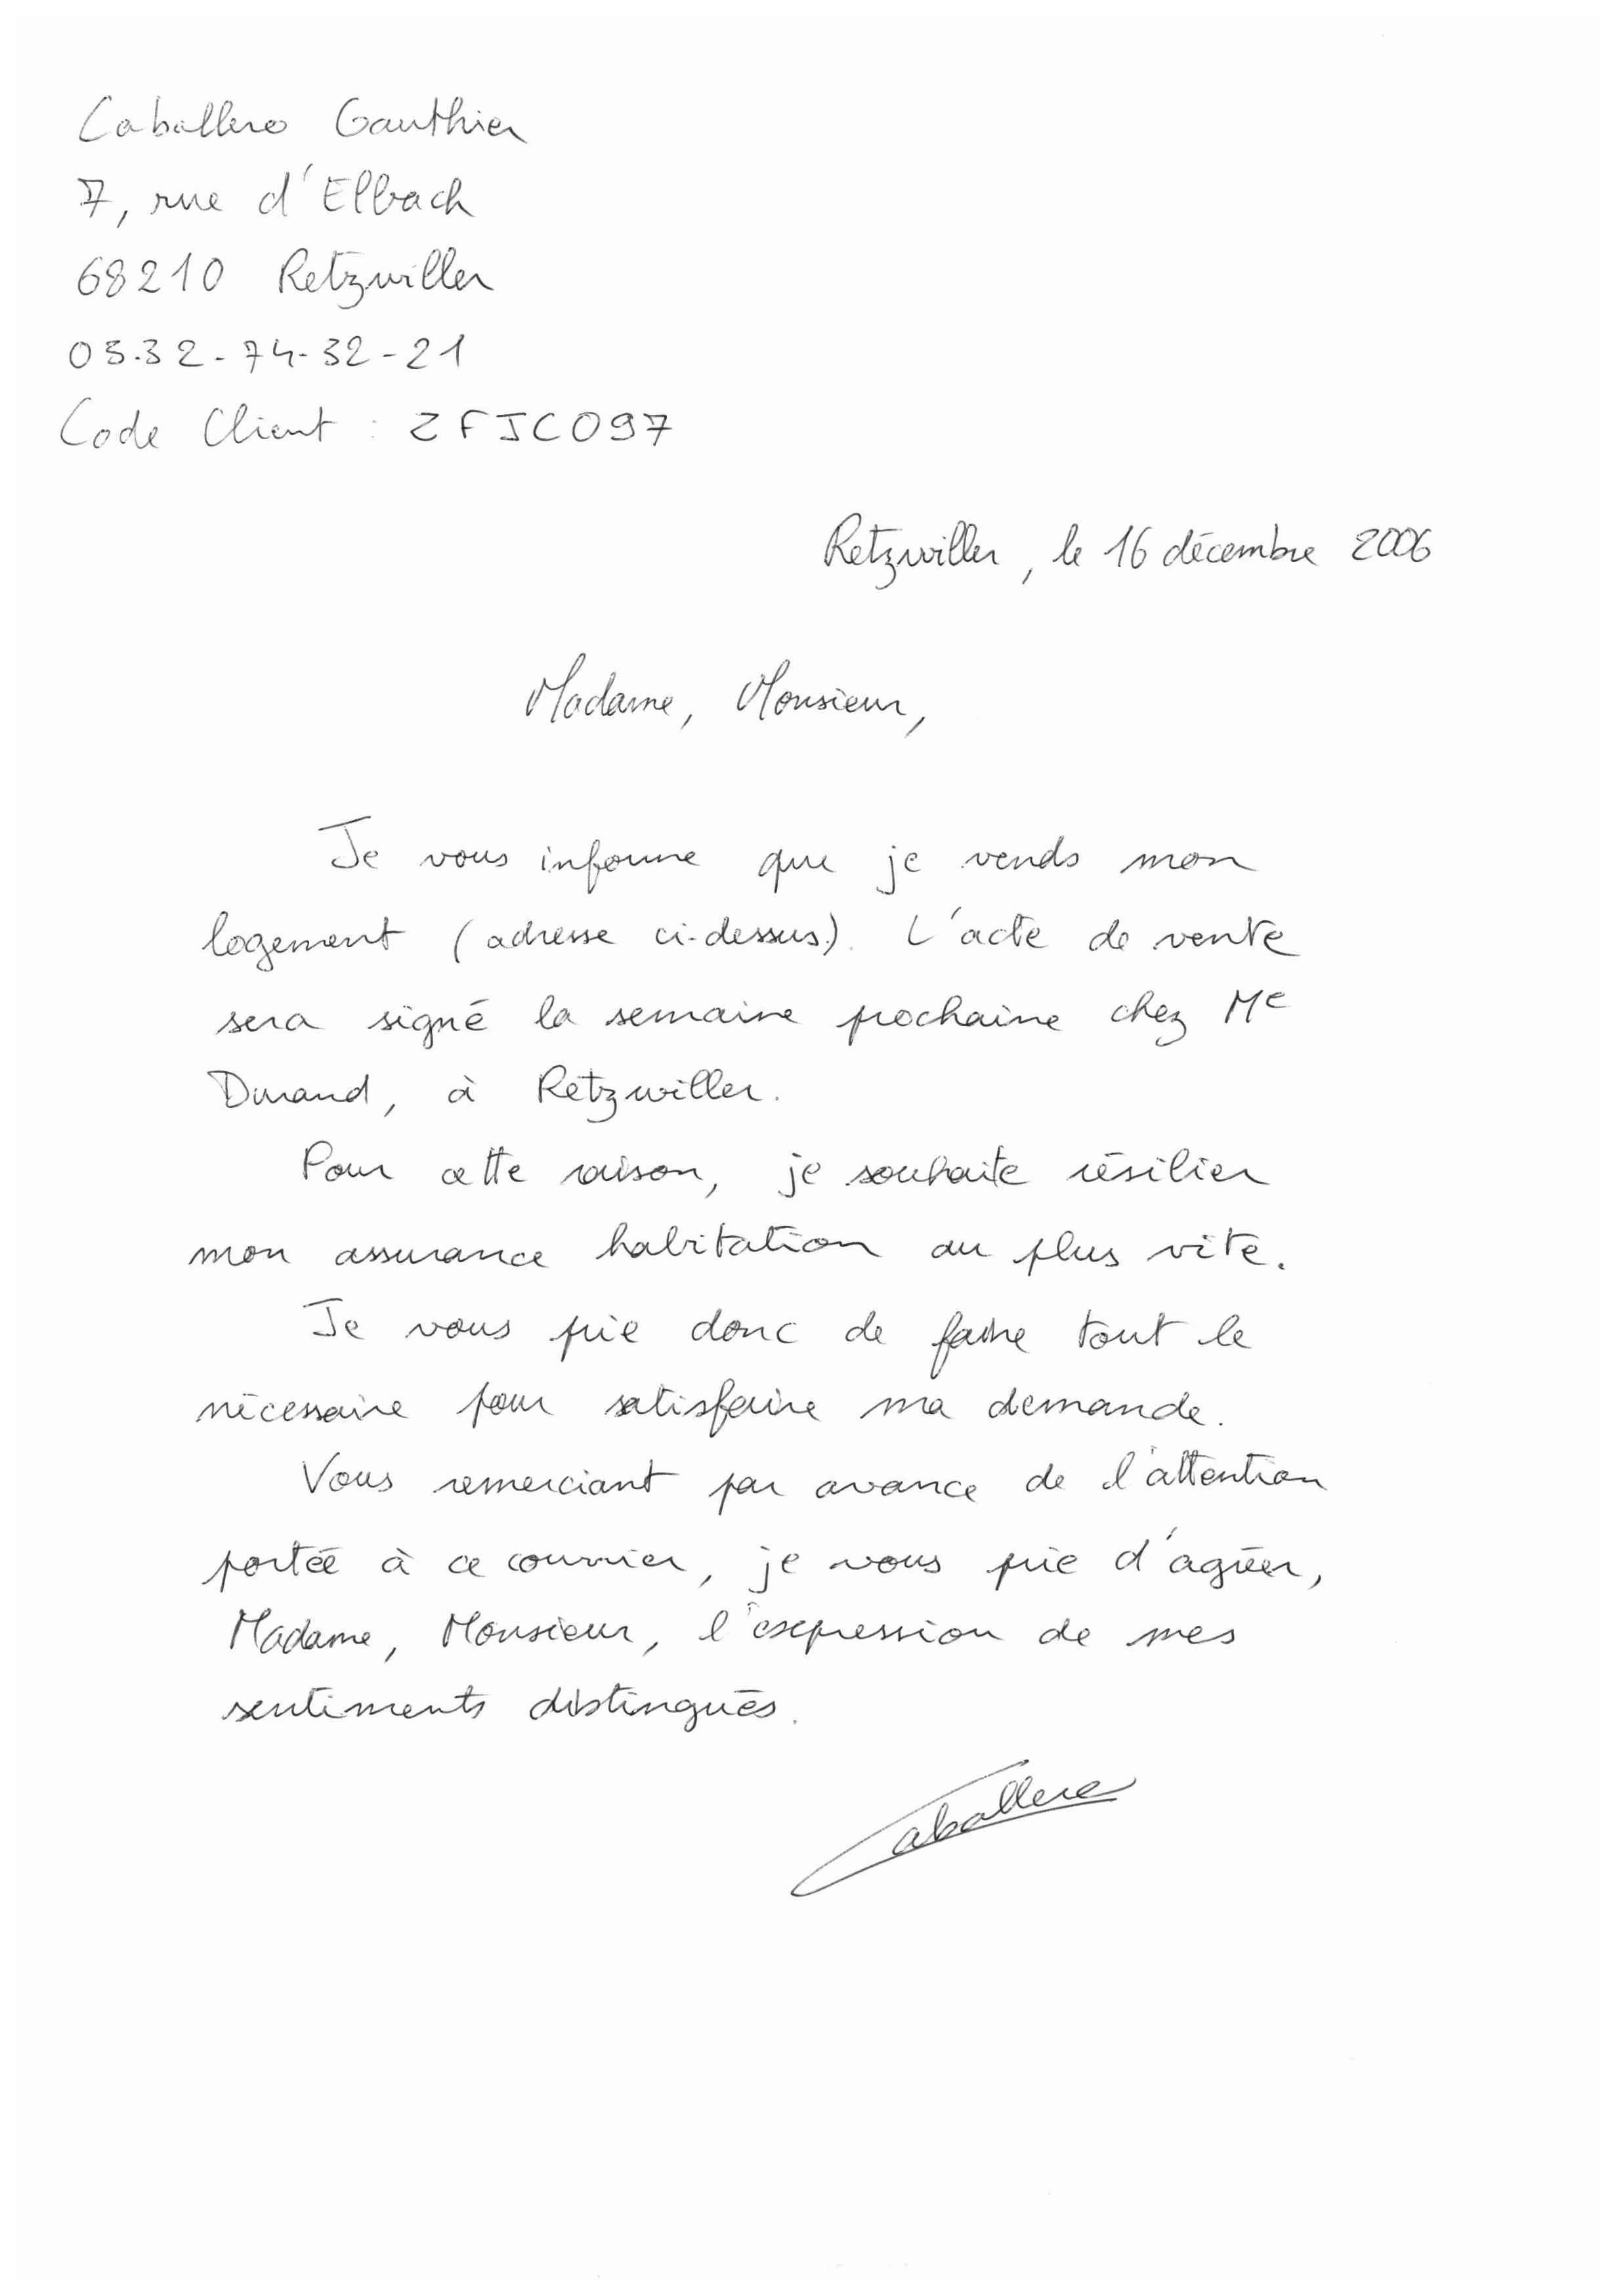 Caballero Gauthier
7, rue d'Elbach
68210 Retzwiller
03.32-74-32-21
Code Client : ZFJC097
Retzwiller, le 16 décembre 2006
Madame, Monsieur,
Je vous informe que je vends mon
logement (adresse ci-dessus). L'acte de vente
sera signé la semaine prochaine chez Me
Durand, à Retzwiller.
Pour cette raison, je souhaite résilier
mon assurance habitation au plus vite.
Je vous prie donc de faire tout le
nécessaire pour satisfaire ma demande.
Vous remerciant par avance de l'attention
portée à ce courrier, je vous prie d'agréer,
Madame, Monsieur, l'expression de mes
sentiments distingués.
Caballero